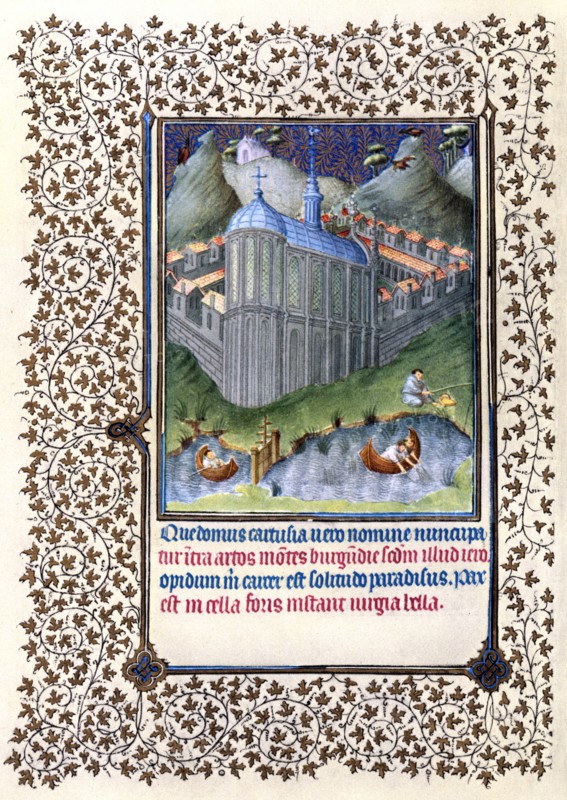 Que domus cartusia uero nomine nuncupa
tur ītra artos mōtes burgūdie scd'm illud iero.
opidum m̄ carcer est solitudo paradisus. Pax
est in cella foris instant iurgia bella.